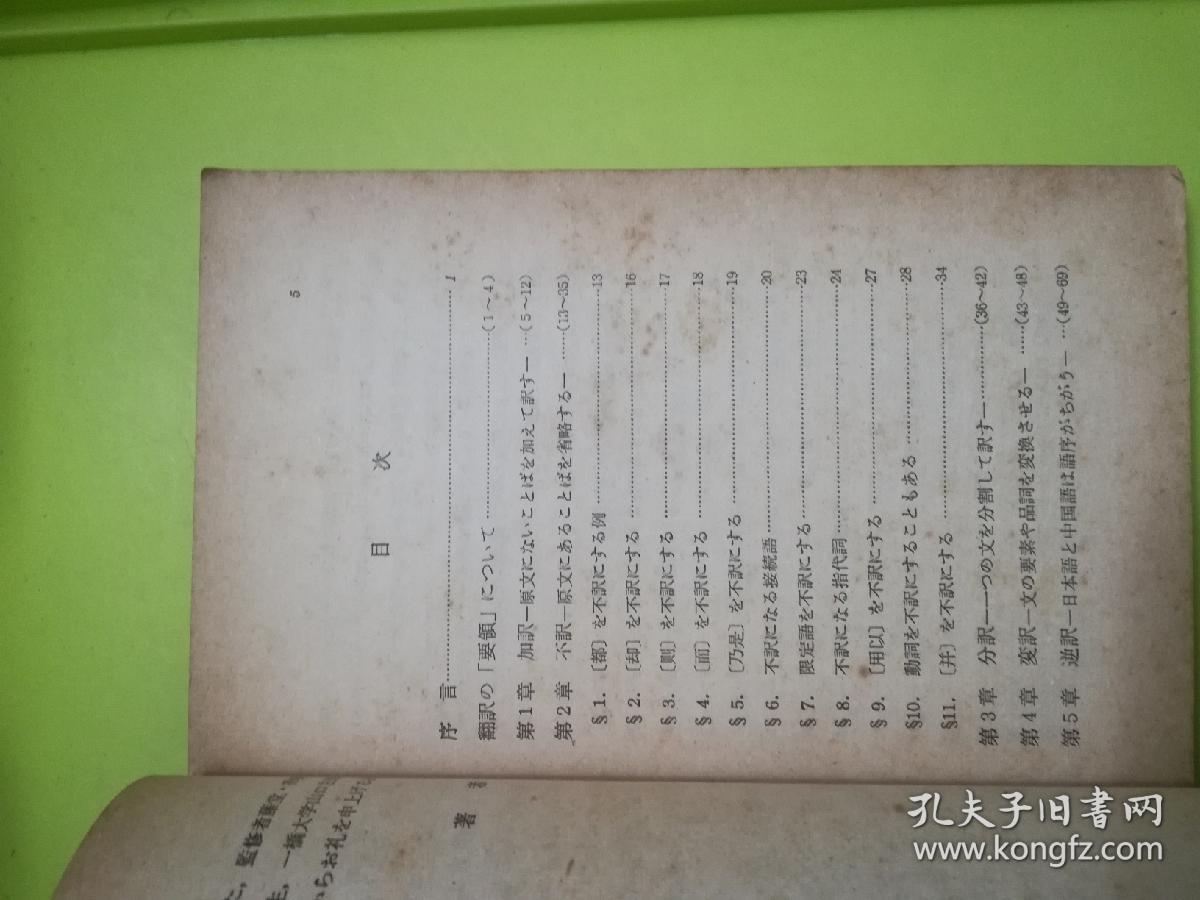 5
目 次
序 言……………………1
翻訳の「要領」について……………(1〜4)
第1章 加訳—原文にないことばを加えて訳す—…(5〜12)
第2章 不訳—原文にあることばを省略する—……(13〜35)
§1.〔都〕を不訳にする例……………………13
§2.〔却〕を不訳にする……………………16
§3.〔則〕を不訳にする……………………17
§4.〔而〕を不訳にする……………………18
§5.〔乃是〕を不訳にする……………………19
§6. 不訳になる接続語……………………20
§7. 限定語を不訳にする……………………23
§8. 不訳になる指代詞……………………24
§9.〔用以〕を不訳にする……………………27
§10. 動詞を不訳にすることもある……………28
§11.〔并〕を不訳にする……………………34
第3章 分訳—一つの文を分割して訳す—…………(36〜42)
第4章 変訳—文の要素や品詞を変換させる—……(43〜48)
第5章 逆訳—日本語と中国語は語序がちがう—…(49〜69)
監修者
一橋大学
らお礼を申上げ
著
孔夫子旧书网
www.kongfz.com